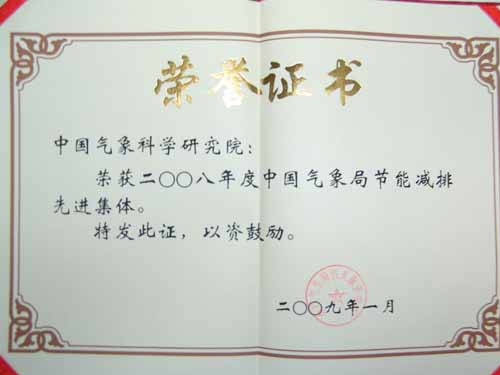 荣誉证书
中国气象科学研究院：
荣获二〇〇八年度中国气象局节能减排
先进集体。
特发此证，以资鼓励。
二〇〇九年一月